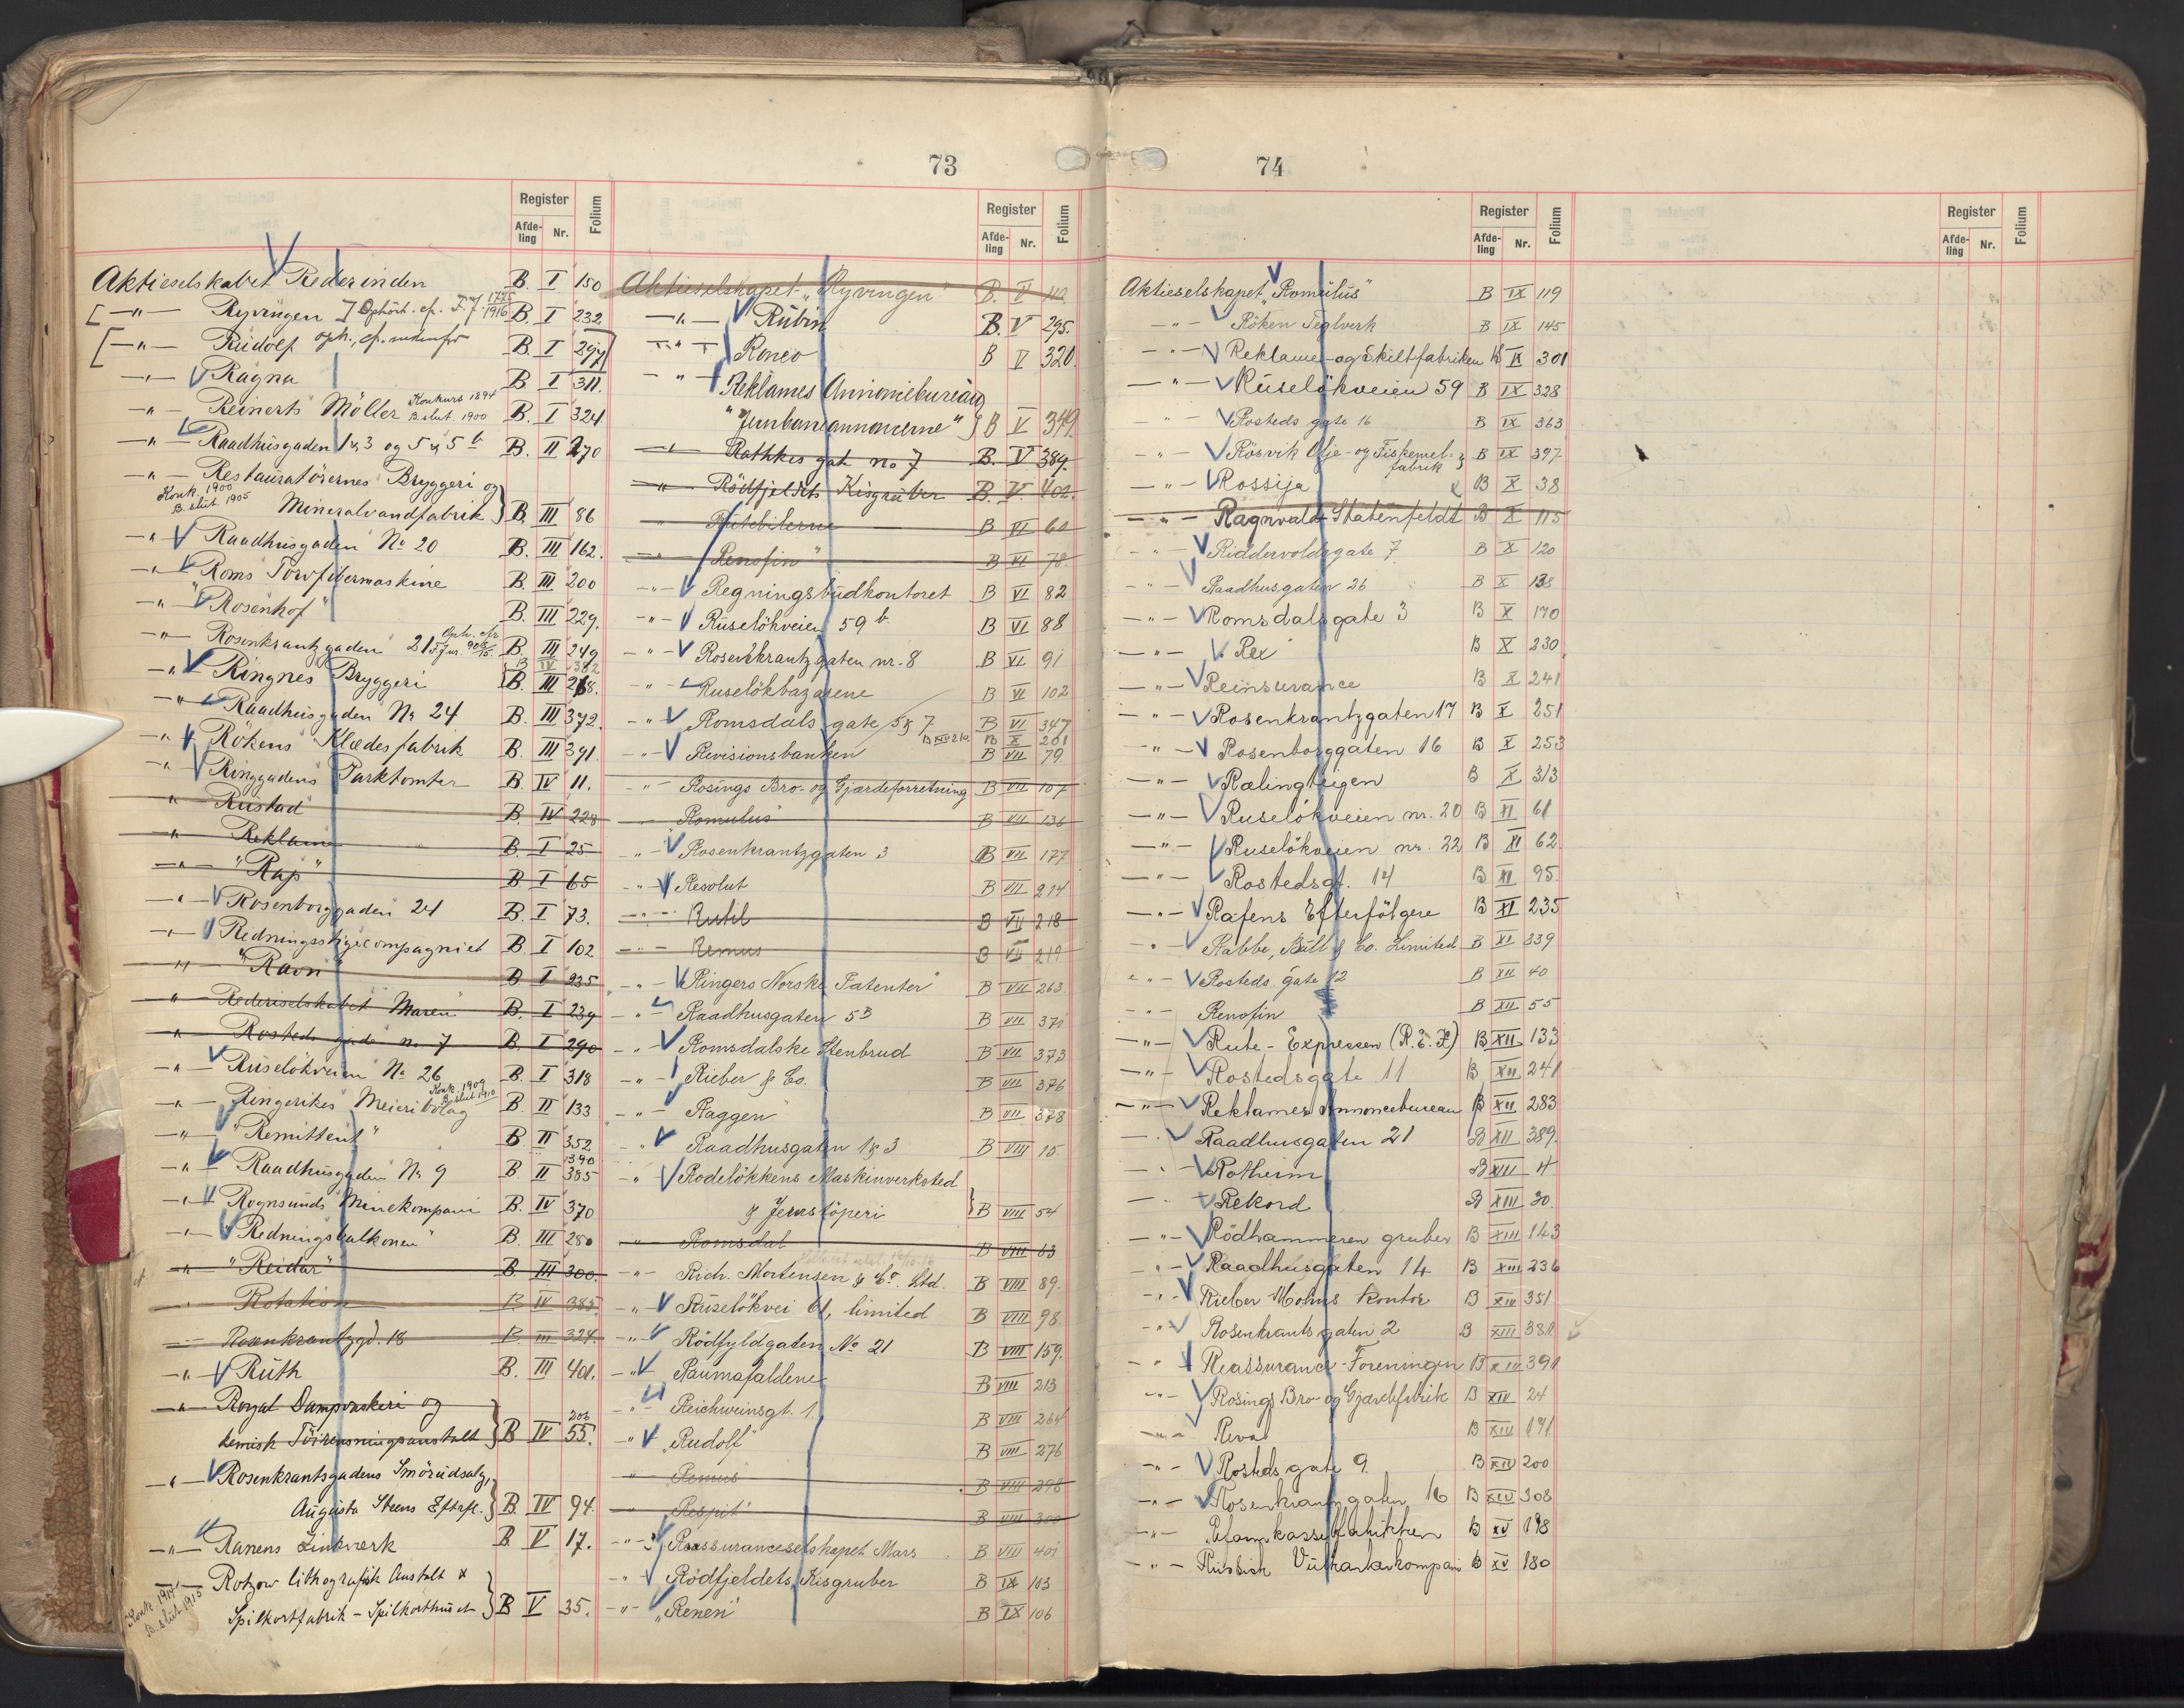 73
Register
Afde-
ling
Nr.
Folium
Aktieselskabet Rederinden B. I 150
[ —"— Ryvingen ] Ophört. cf. F. J. 1775/1916 B. I 232
[ —"— Rudolf oph., cf. nedenfor B. I 297 ]
—"— Ragna B. I 311.
—"— Reinerts Möller Konkurs 1894 B. slut. 1900 B. I 324
—"— Raadhusgaden 1 & 3 og 5 & 5 b B. II 270
—"— Restauratörernes Bryggeri og
Konk. 1900
B. slut. 1905
Mineralvandfabrik } B. III 86
—"— Raadhusgaden No 20 B. III 162.
—"— Roms Torvfibermaskine B. III 200
—"— "Rosenhof" B. III 229.
—"— Rosenkrantzgaden 21 Oph. cfr. B. III 249
B IV 382
—"— Ringnes Bryggeri B. III 268.
—"— Raadhusgaden No 24 B. III 372.
—"— Rökens Klædesfabrik B. III 391.
—"— Ringgadens Parktomter B. IV 11.
—"— Rustad B IV 228
—"— Reklame B. I 25
—"— "Rap" B I 65
—"— Rosenborggaden 24 B. I 73.
—"— Redningsstigecompagniet B. I 102
—"— "Ravn" B I 235
—"— Rederiselskabet Maren B. I 239
—"— Rosteds gade no 7 B. I 290
—"— Ruselökveien No 26 B. I 318
Konk. 1909
B. slut 1910
—"— Ringerikes Meieribolag B. II 133
—"— "Remittent" B II 352
1390
—"— Raadhusgaden No 9 B. II 385
—"— Rognsunds Minekompani B. IV 370
—"— "Redningsbalkonen" B. III 280
—"— "Reidar" B. III 300.
—"— Rotation B IV 385
—"— Rosenkrantzgd. 18 B III 324.
—"— Ruth B. III 401.
—"— Royal Dampvaskeri og
206
kemisk Töirensningsanstalt } B IV 55.
—"— Rosenkrantsgadens Smörudsalg,
Augusta Steens Eftrfl. } B. IV 94.
—"— Ranens Zinkværk B. V 17.
—"— Rotzow lithografisk Anstalt &
Konk 1914
B. slut. 1915
Spilkortfabrik - Spilkorthuset } B V 35.
Register
Afde-
ling
Nr.
Folium
Aktieselskapet „Ryvingen" B. V 110
—"— Rubin B. V 295.
—"— Roneo B V 320.
—"— Reklames Annoncebureau
"Jernbaneannoncerne" } B V 349
—"— Rathkes gate no 7 B. V 389.
—"— Rödfjeldets Kisgruber B. V. 402.
—"— Rutebilerne B VI 60
—"— "Renofin" B VI 78.
—"— Regningsbudkontoret B VI 82
—"— Ruselökveien 59 b B VI 88
—"— Rosenkrantzgaten nr. 8 B VI 91
—"— Ruselökbazarene B VI 102
—"— Romsdals gate 5 & 7 B VI 347
B X 201
—"— Revisionsbanken B VII 79
—"— Rosings Bro- og Gjærdeforretning B VII 107
—"— Romulus B VII 136
—"— Rosenkrantzgaten 3 B VII 177
—"— Resolut B VII 214
—"— Rutil B VII 218
—"— Remus B VII 219
—"— Ringers Norske Patenter B VII 263
—"— Raadhusgaten 5B B VII 371
—"— Romsdalske Stenbrud B VII 373
—"— Rieber & Co. B VII 376
—"— Raggen B VII 378
—"— Raadhusgaten 1 & 3 B VIII 15
—"— Rodelökkens Maskinverksted
& Jernstöperi } B VIII 54
—"— Romsdal B VIII 63
—"— Rich. Mortensen & Co. Ltd. B VIII 89.
—"— Ruselökvei 61, limited B VIII 98.
—"— Rödfyldgaten No 21 B VIII 159.
—"— Raumafaldene B VIII 213
—"— Reichweinsgt. 1. B VIII 264
—"— „Rudolf" B VIII 276
—"— Remus B VIII 298
—"— Respit B VIII 300
—"— Reassuranceselskapet Mars B VIII 401
—"— Rödfjeldets Kisgruber B IX 103
—"— „Renen" B IX 106
74
Register
Afde-
ling
Nr.
Folium
Aktieselskapet „Romulus" B IX 119
—"— Röken Teglverk B IX 145
—"— Reklame- og Skiltfabriken B IX 301
—"— Ruselökveien 59 B IX 328
—"— Rosteds gate 16 B IX 363
—"— Rösvik Olje- og Fiskemel-
fabrik } B IX 397
—"— Rossija B X 38
—"— Ragnvald Statenfeldt B X 115
—"— Riddervoldsgate 7 B X 120
—"— Raadhusgaten 26 B X 138
—"— Romsdalsgate 3 B X 170
—"— Rex B X 230
—"— Reinsurance B X 241
—"— Rosenkrantzgaten 17 B X 251
—"— Rosenborggaten 16 B X 253
—"— Rælingteigen B X 313
—"— Ruselökveien nr. 20 B XI 61
—"— Ruselökveien nr. 22 B XI 62
—"— Rostedsgt. 14 B XI 95
—"— Rafens Efterfölgere B XI 235
—"— Rabbe, Bull & Co. Limited B XI 339
—"— Rosteds gate 12 B XII 40
—"— Renofin B XII 55
—"— Rute-Expressen (R. E. X) B XII 133
—"— Rostedsgate 11 B XII 241
—"— Reklames Annoncebureau B XII 283
—"— Raadhusgaten 21 B XII 389.
—"— Rotheim B XIII 4
—"— Rekord B XIII 30.
—"— Rödhammeren gruber B XIII 143
—"— Raadhusgaten 14 B XIII 236
—"— Rieber Mohns Kontor B XIV 351
—"— Rosenkrantsgaten 2 B XIII 381
—"— Reassurance-Foreningen B XIII 391
—"— Rosings Bro- og Gjærdefabrik B XIV 24
—"— Reval B XIII 191
—"— Rosteds gate 9. B XIV 200
—"— Rosenkrantzgaten 16 B XIV 308
—"— kassefabrikken B XV 198
—"— Russisk kompani B XV 180
Register
Afde-
ling
Nr.
Folium